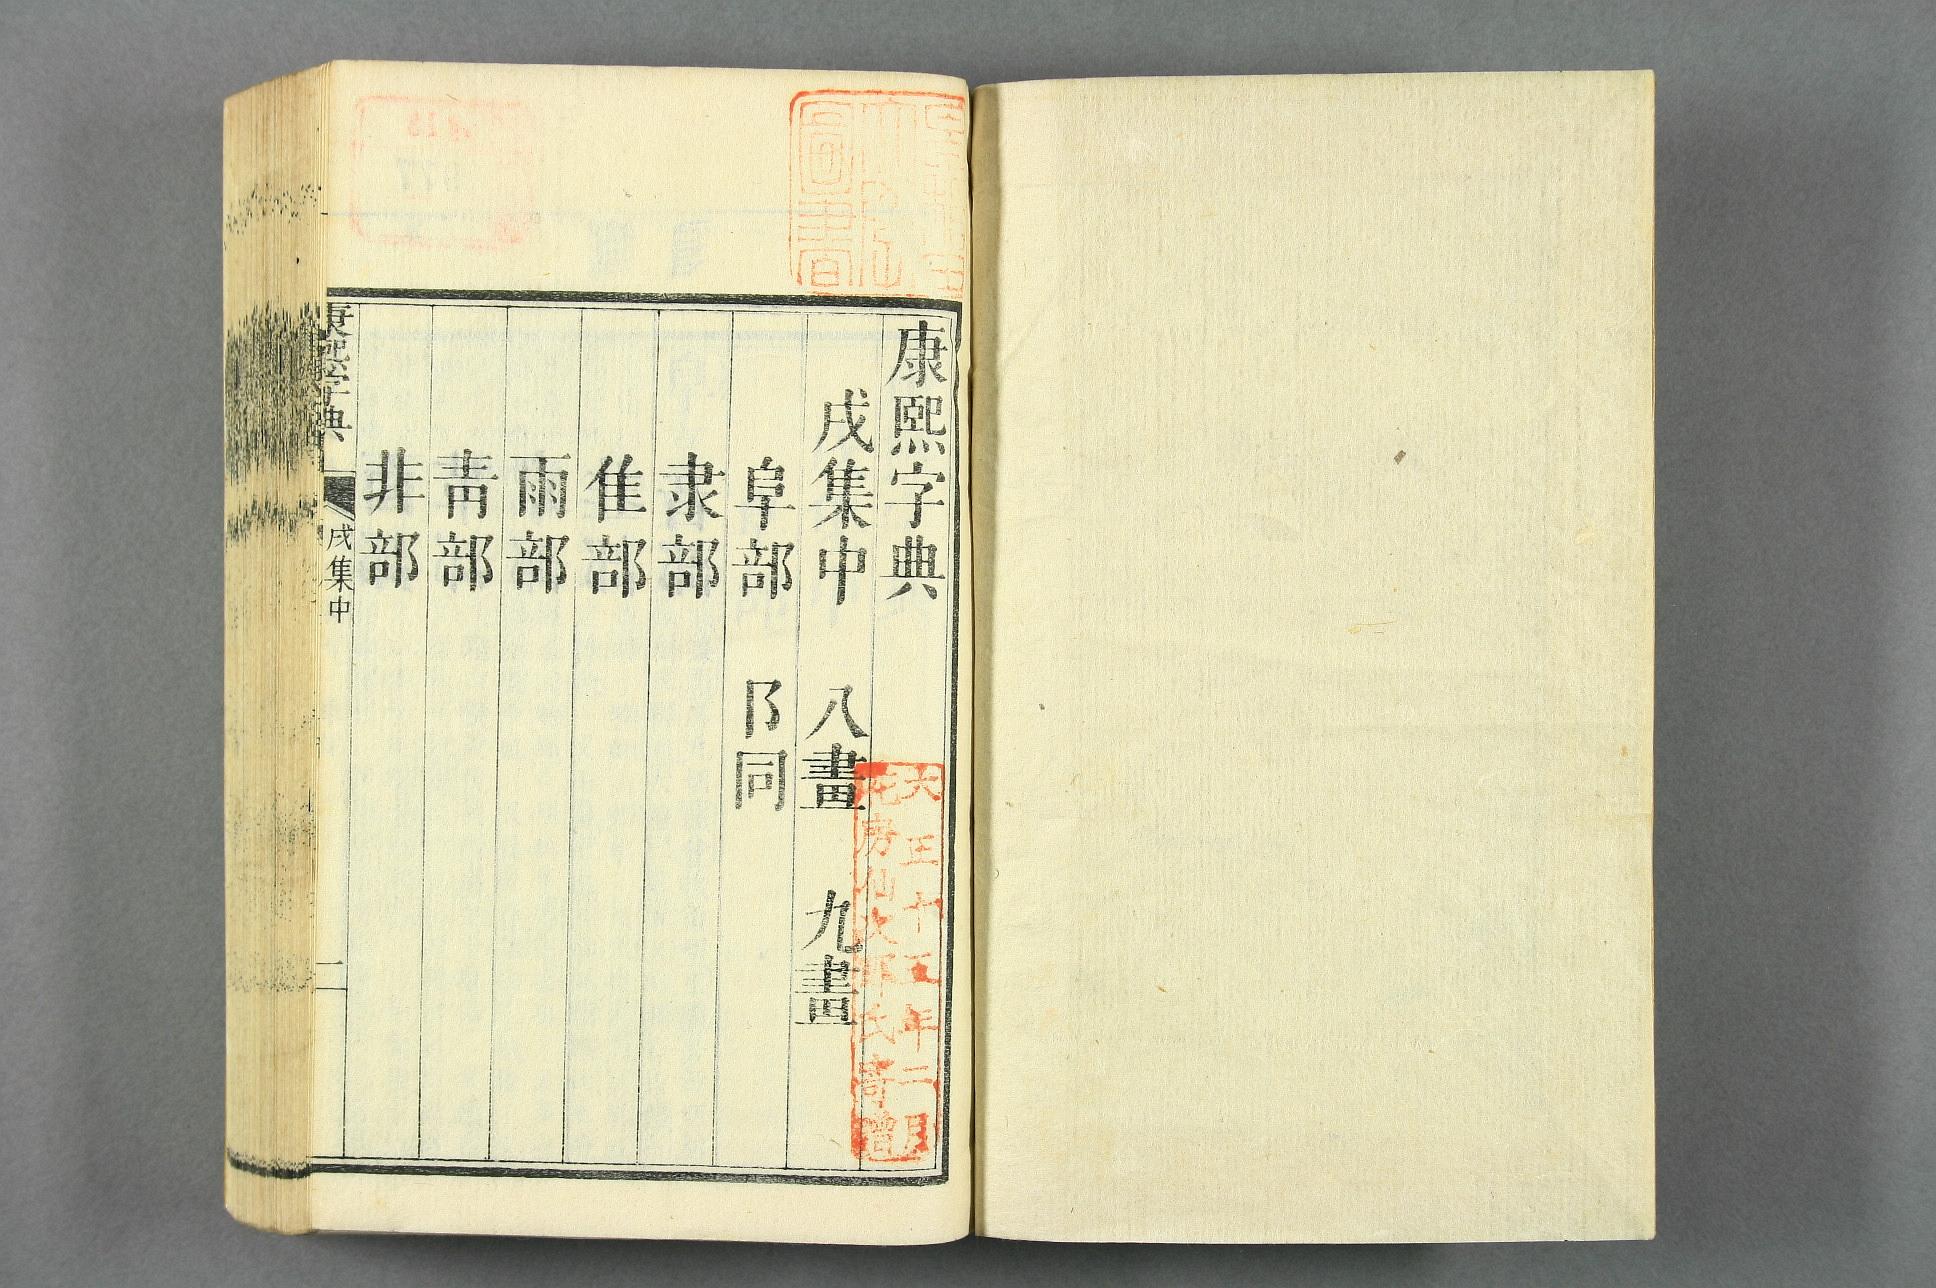 康熙字典
戌集中 八畫 九畫
阜部 阝同
隶部
隹部
雨部
靑部
非部
康熙字典 戌集中 一
大正十五年二月
故 房仙次郎氏寄贈
圖書